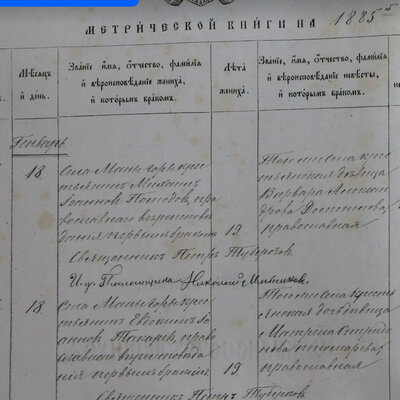 МЕТРИ́ЧЕСКОЙ КНИ́ГИ НА 1885
Мѣ́сяцъ и҆ день.
Зва́нїе и҆́мя, ѻ҆́тчество, фами́лїя и҆ вѣроисповѣ́данїе жениха̀, и҆ кото́рымъ бра́комъ.
Лѣ́та жениха̀.
Зва́нїе, и҆́мя, ѻ҆́тчество, фами́лїя и҆ вѣроисповѣ́данїе невѣ́сты, и҆ кото́рымъ бра́комъ.
Генварь.
18
Села Маны горы крес
тьянинъ Михаилъ
Іоанновъ, пра
вославнаго вѣроиспов
данія первымъ бракомъ
19
Тогоже села крес
тьянская дѣвица
Варвара Алексан
дрова
православная
Священникъ Петръ Туберозовъ.
И. д. Псаломщика Николай
18
Села Маны горы крес
тьянинъ Евдокимъ Іо
анновъ Токаровъ, право
славнаго вѣроисповѣда
нія первымъ бракомъ
19
Тогоже села крест
янская дочь дѣвица
Матрена Спиридо
нова Пономарева
православная
Священникъ Петръ Туберозовъ